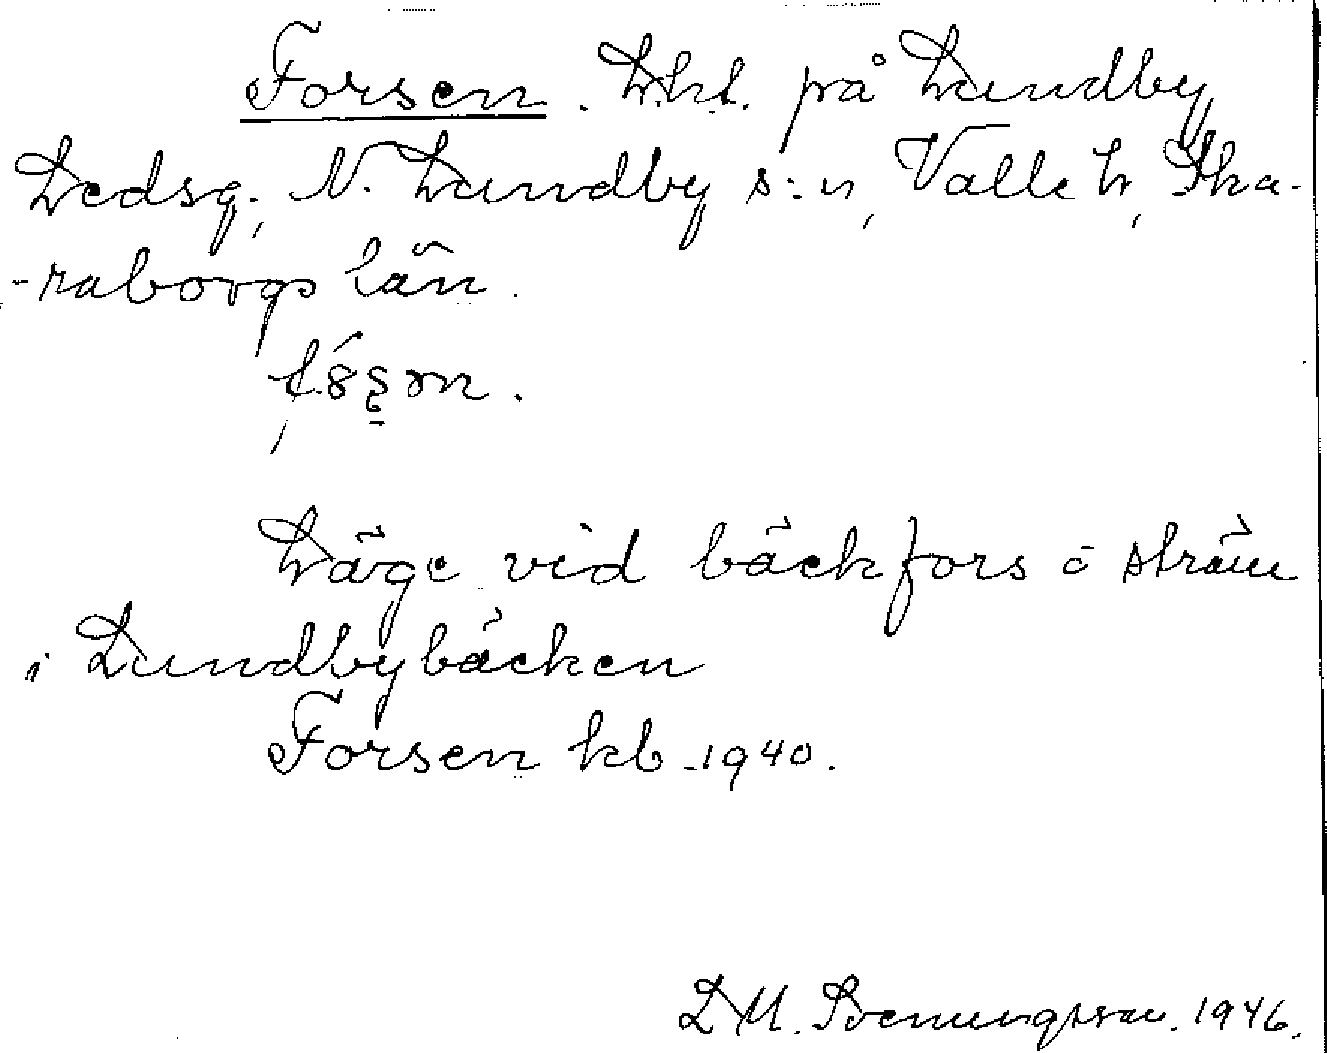 Forsen. Lht. på Lundby
Ledsg., N. Lundby s:n, Valle h, Ska-
-raborgs län.
Läge vid bäckfors o ström
i Lundbybäcken
Forsen kb 1940.
D M. Svenungsson. 1946.